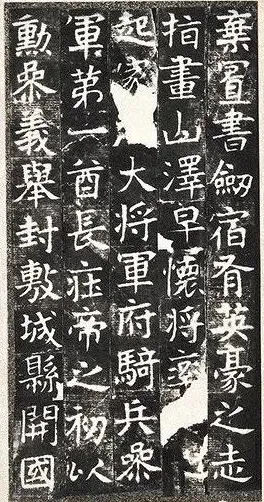 棄置書劒宿有英豪之志
指畫山澤早懷將率
起家大將軍府騎兵叅
軍第一酋長庄帝之初以
勳叅義舉封敷城縣開國